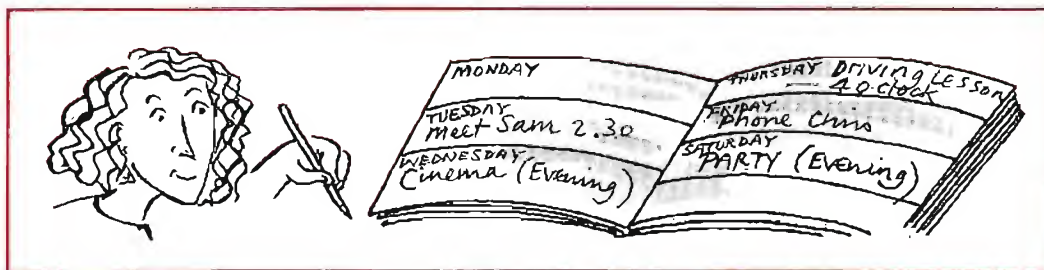 MONDAY
TUESDAY
Meet Sam 2.30
WEDNESDAY
Cinema (Evening)
THURSDAY Driving Lesson
4 o'clock
FRIDAY
Phone Chris
SATURDAY
PARTY (Evening)